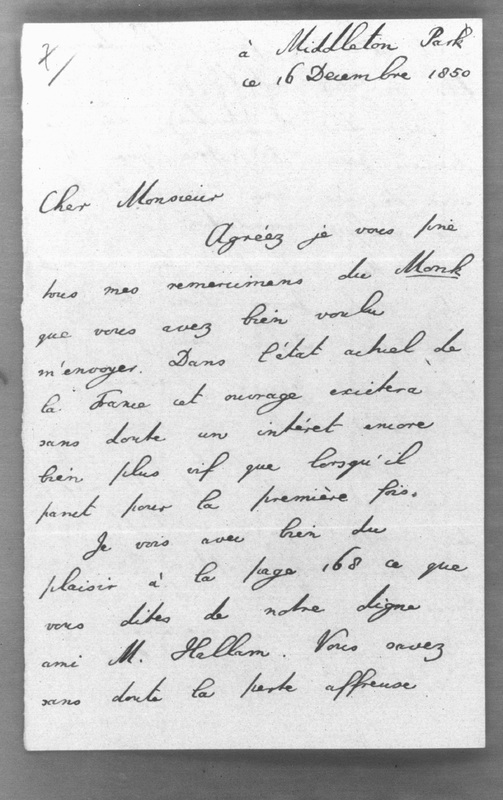 à Middleton Park
ce 16 Decembre 1850
Cher Monsieur
Agréez je vous prie
tous mes remercimens du Monk
que vous avez bien voulu
m'envoyer. Dans l'état actuel de
la France cet ouvrage excitera
sans doute un intéret encore
bien plus vif que lorsqu'il
parut pour la première fois.
Je vois avec bien du
plaisir à la page 168 ce que
vous dites de notre digne
ami M. Hallam. Vous savez
sans doute la perte affreuse